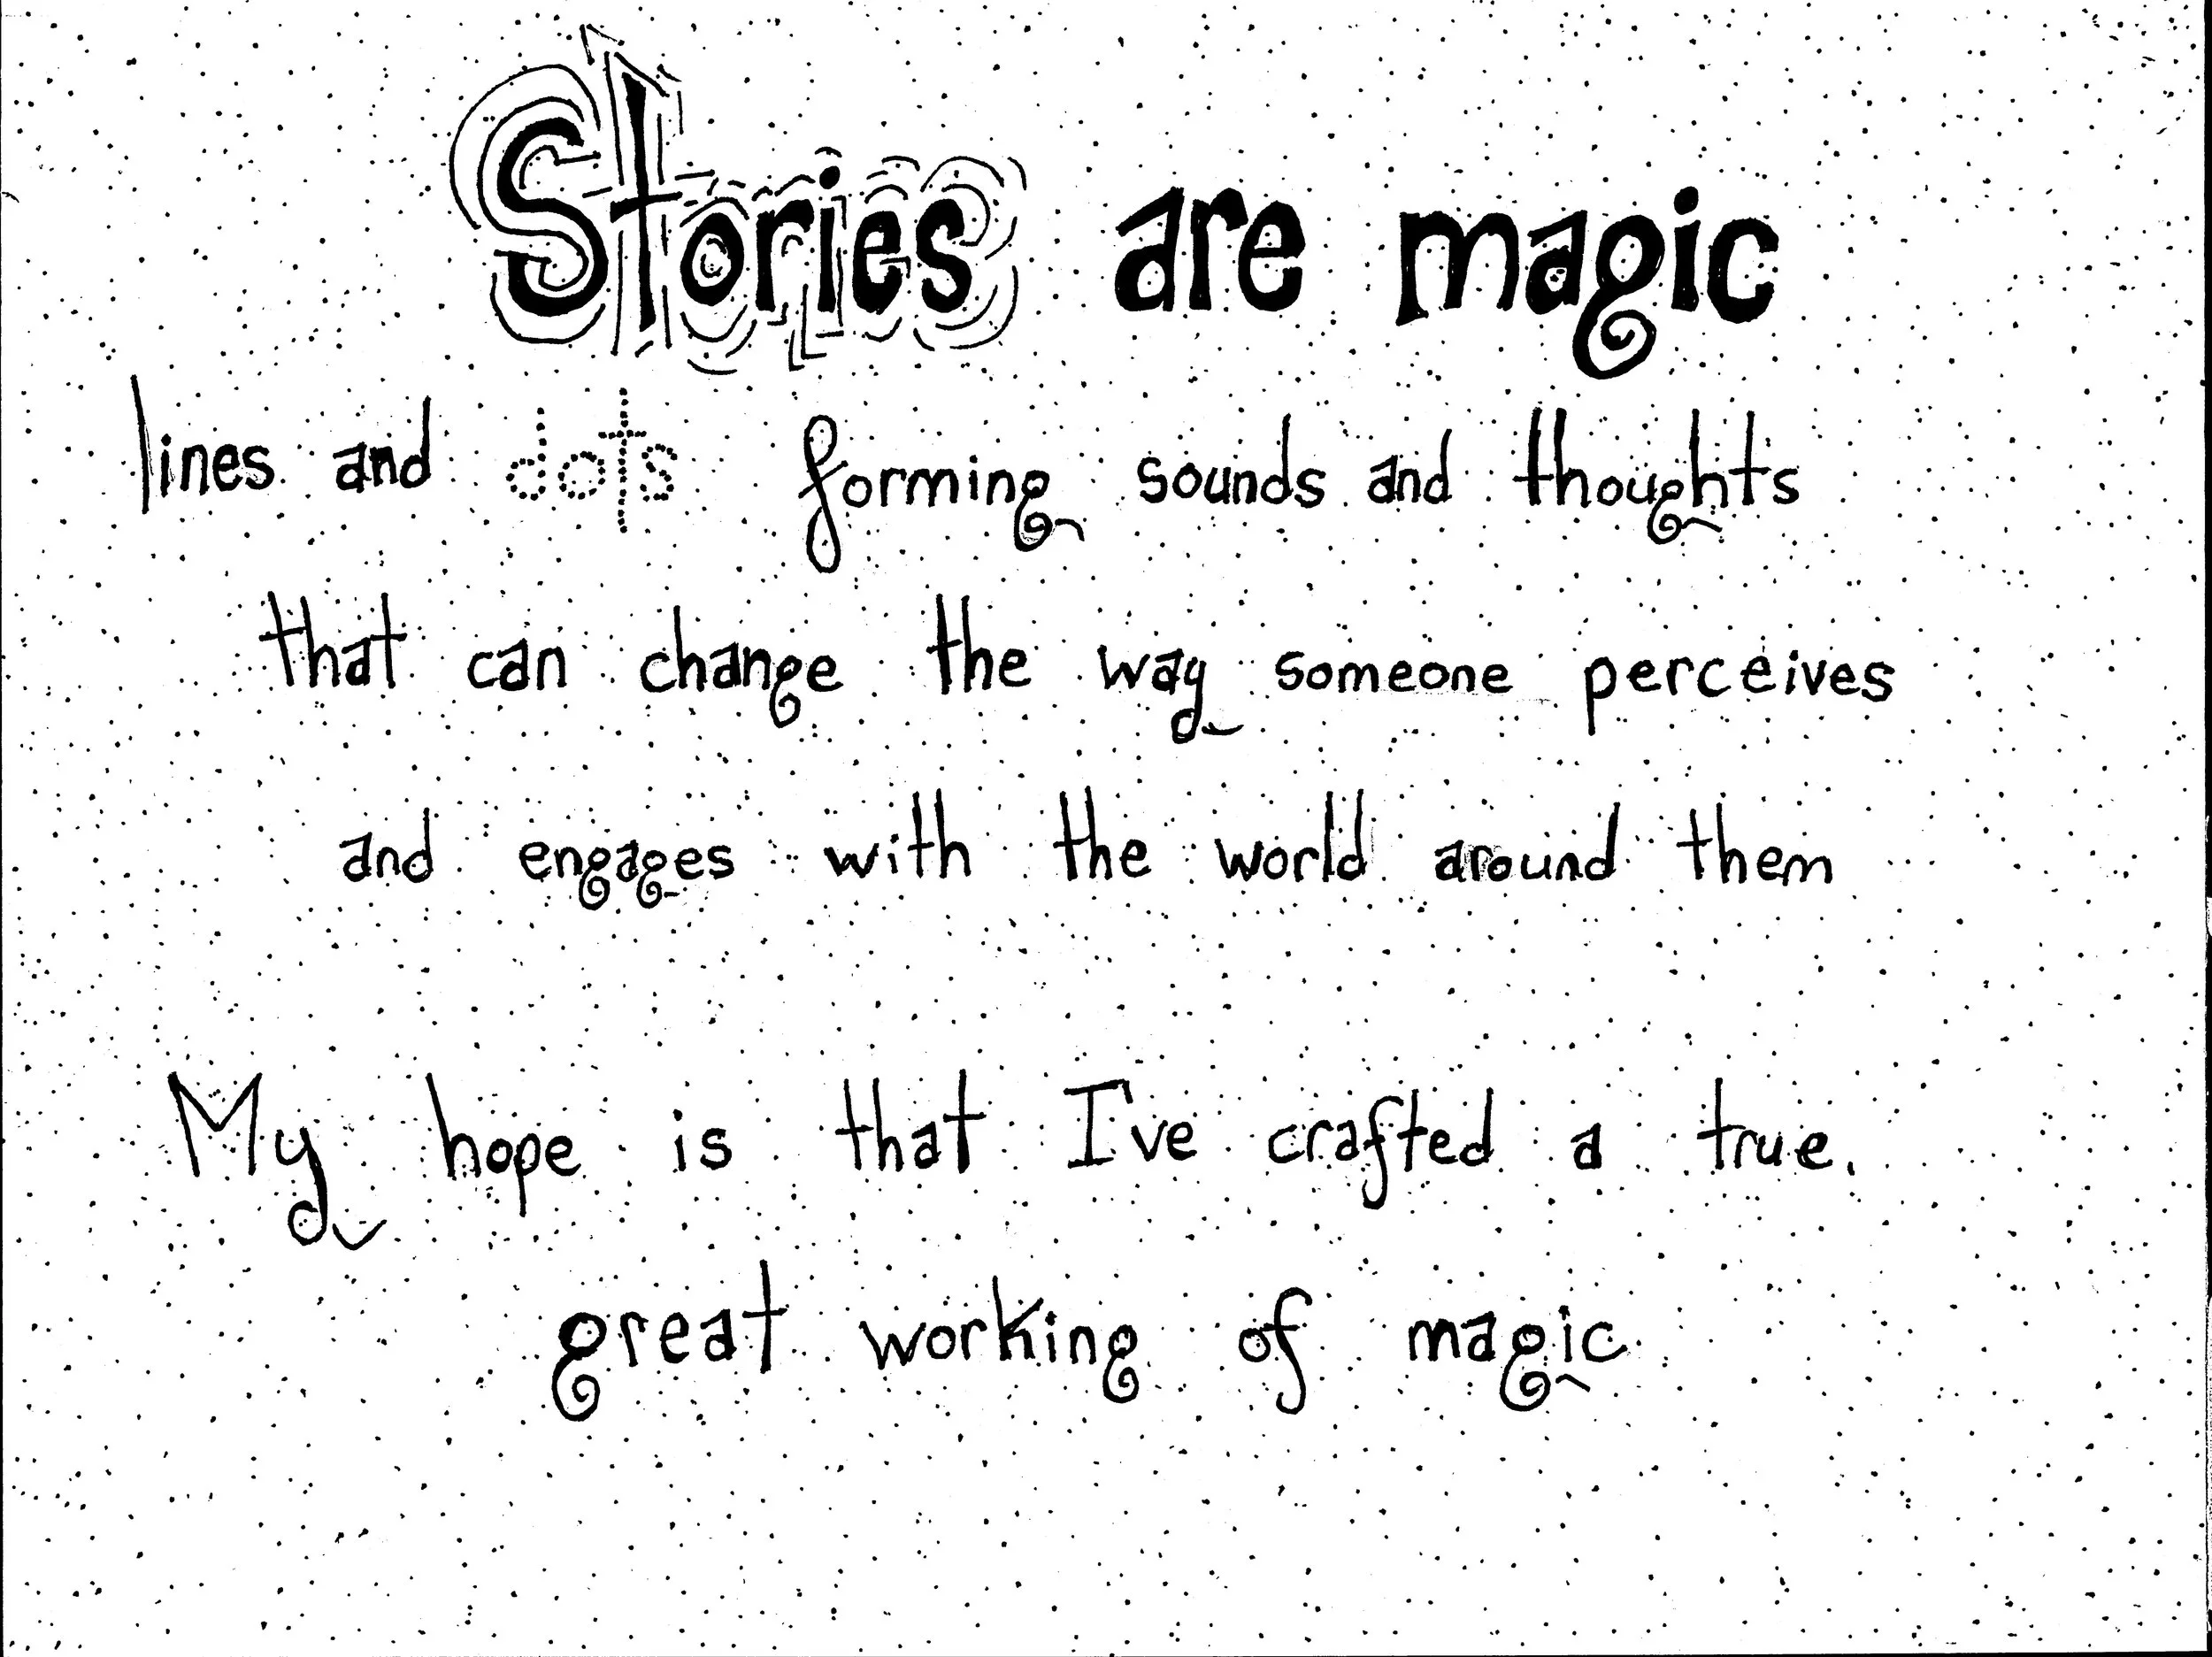 Stories are magic
lines and dots forming sounds and thoughts
that can change the way someone perceives
and engages with the world around them
My hope is that I've crafted a true,
great working of magic